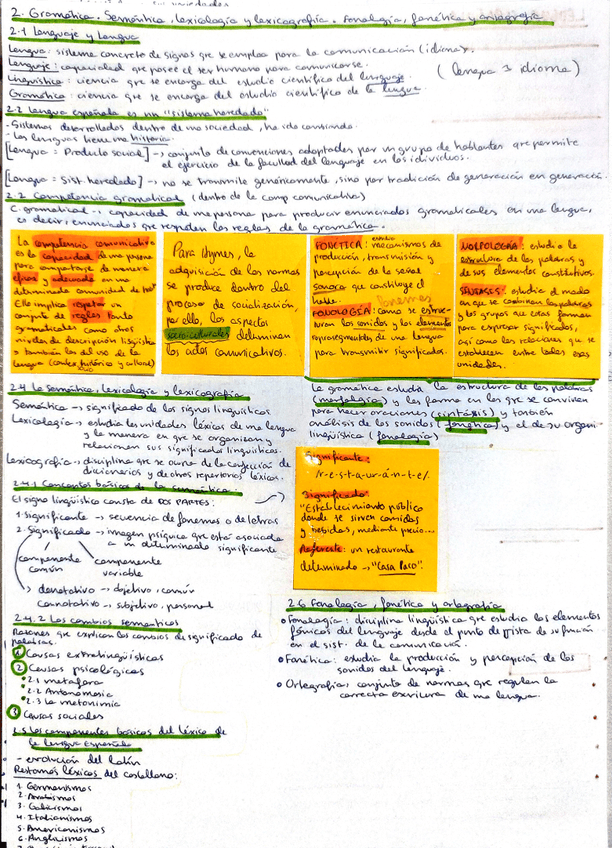 2. Gramática. Semántica, lexicología y lexicografía. Fonología, fonética y ortografía
2.1 Lenguaje y Lengua
Lengua: sistema concreto de signos que se emplea para la comunicación (idioma).
Lenguaje: capacidad que posee el ser humano para comunicarse.
Lingüística: ciencia que se encarga del estudio científico del lenguaje.
Gramática: ciencia que se encarga del estudio científico de la lengua.
(lengua idioma)
2.2 Lengua española es un "sistema heredado"
- Sistemas desarrollados dentro de una sociedad, ha ido cambiando.
- Las lenguas tienen una historia.
[Lengua = Producto social] → conjunto de convenciones adoptadas por un grupo de hablantes que permite
el ejercicio de la facultad del lenguaje en los individuos.
[Lengua = Sist. heredado] → no se transmite genéricamente, sino por tradición de generación en generación.
2.2 Competencia gramatical (dentro de la comp comunicativa)
C. gramatical → capacidad de una persona para producir enunciados gramaticales en una lengua,
es decir, enunciados que respeten las reglas de la gramática.
La competencia comunicativa
es la capacidad de una persona
para comportarse de manera
eficaz y adecuada en una
determinada comunidad de
Ello implica respetar un
conjunto de reglas tanto
gramaticales como otros
niveles de descripción lingüística
o también las del uso de la
lengua (contex histórico y cultural)
Para Hymes, la
adquisición de las normas
se produce dentro del
proceso de socialización,
por ello, los aspectos
socio-culturales determinan
los actos comunicativos.
FONÉTICA: mecanismos de
producción, transmisión y
percepción de la señal
sonora que constituye el
habla. fonemas
FONOLOGÍA: como se estruc-
turan los sonidos y los elementos
suprasegmentales de una lengua
para transmitir significados.
MORFOLOGÍA: estudia la
estructura de las palabras y
de sus elementos constitutivos.
SINTAXIS: estudia el modo
en que se combinan las palabras
y los grupos que estas forman
para expresar significados,
así como las relaciones que se
establecen entre todas esas
unidades.
2.4 La Semántica, lexicología y lexicografía
Semántica → significado de los signos lingüísticos
Lexicología → estudia las unidades léxicas de una lengua
y la manera en que se organizan y
relacionan sus significados lingüísticos.
Lexicografía → disciplina que se ocupa de la confección de
diccionarios y de otros repertorios léxicos.
La gramática estudia la estructura de las palabras
(morfología) y las forma en las que se combinan
para hacer oraciones (sintaxis) y también
análisis de los sonidos (fonética) y el de su organi-
lingüística (fonología)
2.4.1 Conceptos básicos de la semántica
El signo lingüístico consta de DOS PARTES:
1. Significante → secuencia de fonemas o de letras
2. Significado → imagen psíquica que está asociada
a un determinado significante
componente común
componente variable
denotativo → objetivo, común
connotativo → subjetivo, personal
Significante:
/r-e-s-t-a-u-r-á-n-t-e/.
Significado:
"Establecimiento público
donde se sirven comidas
y bebidas, mediante precio..."
Referente: un restaurante
determinado → "Casa Paco".
2.4.2 Los cambios semánticos
Razones que explican los cambios de significado de
palabras.
1 Causas extralingüísticas
2 Causas psicológicas
2.1 metáfora
2.2 Antonomasia
2.3 La metonimia
3 Causas sociales
2.6 Fonología, fonética y ortografía
Fonología: disciplina lingüística que estudia los elementos
fónicos del lenguaje desde el punto de vista de su función
en el sist. de la comunicación.
Fonética: estudia la producción y percepción de los
sonidos del lenguaje.
Ortografía: conjunto de normas que regulan la
correcta escritura de una lengua.
2.5 Los componentes básicos del léxico de
la lengua Española
- evolución del latín
Préstamos léxicos del castellano:
1. Germanismos
2. Arabismos
3. Galicismos
4. Italianismos
5. Americanismos
6. Anglicismos